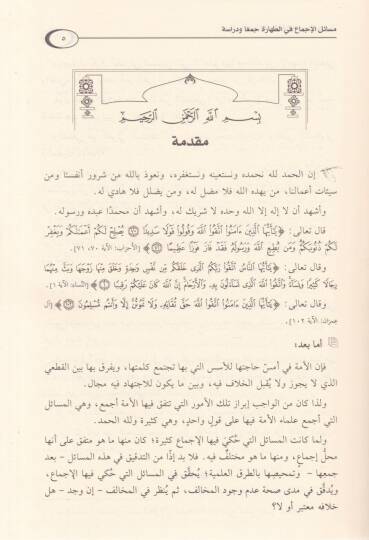 مسائل الإجماع في الطهارة جمعًا ودراسة
٥
بسم الله الرحمن الرحيم
مقدمة
إن الحمد لله نحمده ونستعينه ونستغفره، ونعوذ بالله من شرور أنفسنا ومن
سيئات أعمالنا، من يهده الله فلا مضل له، ومن يضلل فلا هادي له.
وأشهد أن لا إله إلا الله وحده لا شريك له، وأشهد أن محمدًا عبده ورسوله.
قال تعالى: ﴿يَٰٓأَيُّهَا ٱلَّذِينَ ءَامَنُوا۟ ٱتَّقُوا۟ ٱللَّهَ وَقُولُوا۟ قَوْلًا سَدِيدًا ۝ يُصْلِحْ لَكُمْ أَعْمَٰلَكُمْ وَيَغْفِرْ
لَكُمْ ذُنُوبَكُمْ وَمَن يُطِعِ ٱللَّهَ وَرَسُولَهُۥ فَقَدْ فَازَ فَوْزًا عَظِيمًا﴾ [الأحزاب: الآية ٧٠، ٧١].
وقال تعالى: ﴿يَٰٓأَيُّهَا ٱلنَّاسُ ٱتَّقُوا۟ رَبَّكُمُ ٱلَّذِى خَلَقَكُم مِّن نَّفْسٍ وَٰحِدَةٍ وَخَلَقَ مِنْهَا زَوْجَهَا وَبَثَّ مِنْهُمَا
رِجَالًا كَثِيرًا وَنِسَآءً وَٱتَّقُوا۟ ٱللَّهَ ٱلَّذِى تَسَآءَلُونَ بِهِۦ وَٱلْأَرْحَامَ إِنَّ ٱللَّهَ كَانَ عَلَيْكُمْ رَقِيبًا﴾ [النساء: الآية ١].
وقال تعالى: ﴿يَٰٓأَيُّهَا ٱلَّذِينَ ءَامَنُوا۟ ٱتَّقُوا۟ ٱللَّهَ حَقَّ تُقَاتِهِۦ وَلَا تَمُوتُنَّ إِلَّا وَأَنتُم مُّسْلِمُونَ﴾ [آل
عمران: الآية ١٠٢].
أما بعد:
فإن الأمة في أمسّ حاجتها للأسس التي بها تجتمع كلمتها، ويفرق بها بين القطعي
الذي لا يجوز ولا يُقبل الخلاف فيه، وبين ما يكون للاجتهاد فيه مجال.
ولذا كان من الواجب إبراز تلك الأمور التي تتفق فيها الأمة أجمع، وهي المسائل
التي أجمع علماء الأمة فيها على قولٍ واحدٍ، وهي كثيرة ولله الحمد.
ولما كانت المسائل التي حُكيَ فيها الإجماع كثيرة؛ كان منها ما هو متفق على أنها
محلُّ إجماعٍ، ومنها ما هو مختلَفٌ فيه. فلا بد إذًا من التدقيق في هذه المسائل – بعد
جمعها – وتمحيصِها بالطرق العلمية؛ يُحقَّق في المسائل التي حكي فيها الإجماع،
ويُدقَّق في مدى صحة عدم وجود المخالف، ثم يُنظر في المخالف – إن وجد – هل
خلافه معتبر أو لا؟